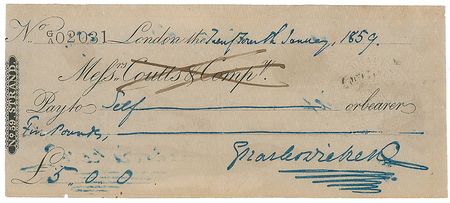 No G/A 02031 London the Twenty fourth January, 1859.
Messrs Coutts & Compy.
Pay to Self or bearer
Five Pounds,
£5..0..0
Charles Dickens
No. 59, STRAND.